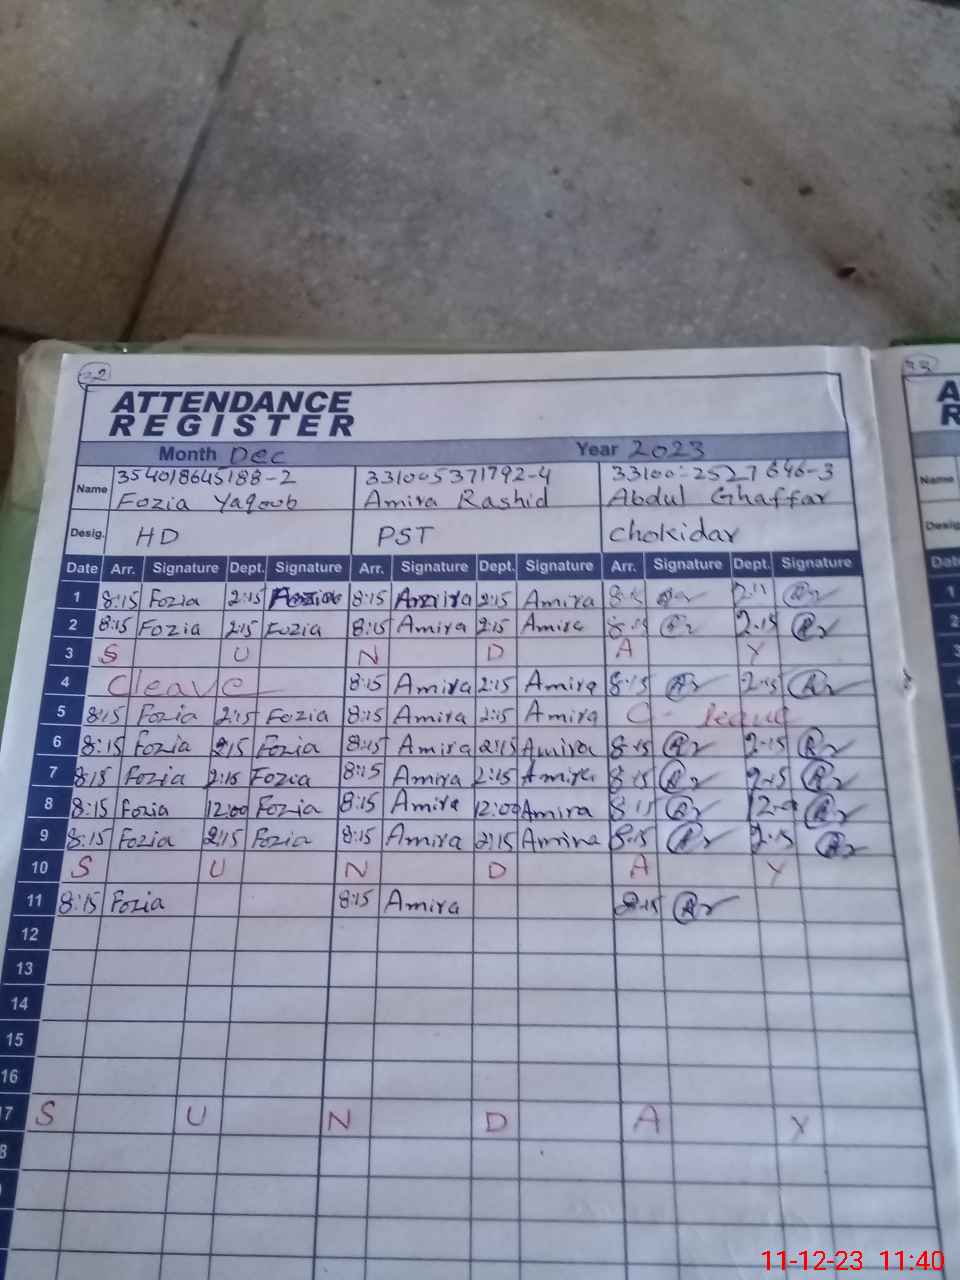 22
ATTENDANCE
REGISTER
Month Dec Year 2023
Name 354018645188-2 331005371792-4 33100-2527646-3
Fozia Yaqoob Amira Rashid Abdul Ghaffar
Desig. HD PST Chokidar
Date Arr. Signature Dept. Signature Arr. Signature Dept. Signature Arr. Signature Dept. Signature
1 8:15 Fozia 2:15 8:15 Amira 2:15 Amira 8:15
2 8:15 Fozia 2:15 Fozia 8:15 Amira 2:15 Amira 8:15 2:15
3 S U N D A Y
4 Cleave 8:15 Amira 2:15 Amira 8:15 2:15
5 8:15 Fozia 2:15 Fozia 8:15 Amira 2:15 Amira C- leave
6 8:15 Fozia 2:15 Fozia 8:15 Amira 2:15 Amira 8:15 2:15
7 8:15 Fozia 2:15 Fozia 8:15 Amira 2:15 Amira 8:15 2:15
8 8:15 Fozia 12:00 Fozia 8:15 Amira 12:00 Amira 8:15
9 8:15 Fozia 2:15 Fozia 8:15 Amira 2:15 Amira 8:15 2:15
10 S U N D A Y
11 8:15 Fozia 8:15 Amira 8:15
12
13
14
15
16
17 S U N D A Y
8
23
A
R
Name
Desig
Date
1
2
3
11-12-23 11:40